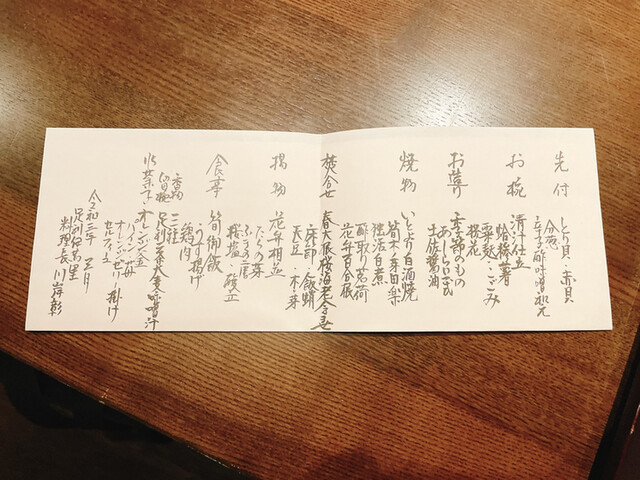 先付
とり貝・赤貝
分葱
辛子酢味噌和え
お椀
清汁仕立
蛤𥻘薯
粟麩・こごみ
桜花
お造り
季節のもの
あしらい色々
土佐醤油
焼物
いとより白酒焼
筍木の芽田楽
独活白煮
酢取り茗荷
花弁百合根
焚合せ
春大根桜海老合せ
飯蛸
木芽
揚物
花弁相並
たらの芽
ふきの唐
桜塩・破立
食事
筍御飯
うす揚げ
鶏肉
三種
香物
留椀
足利麦大麦味噌汁
水菓子
オレンジ釜
パイン・苺
オレンジゼリー掛け
令和三年 三月
足利伝馬里
料理長 川岸彰